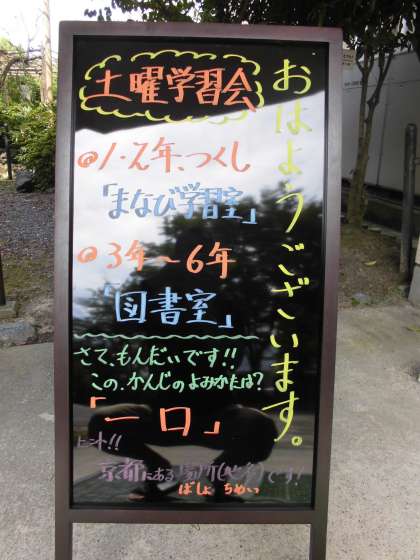 おはようございます。
土曜学習会
@1・2年、つくし
「まなび学習室」
@3年〜6年
「図書室」
さて、もんだいです!!
この、かんじのよみかたは?
「一口」
ヒント!!
京都にある場所(地名)です!
ばしょ ちめい